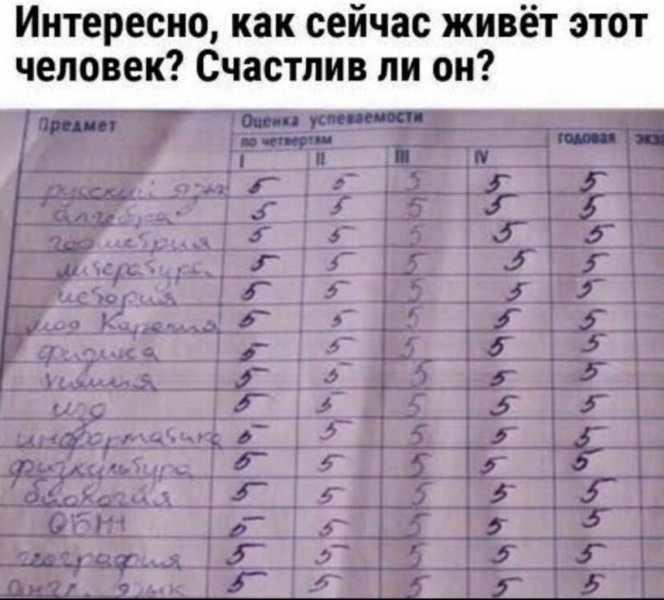 Интересно, как сейчас живёт этот
человек? Счастлив ли он?
Предмет Оценка успеваемости
по четвертям годовая экз
I II III IV
русский язык 5 5 5 5 5
алгебра 5 5 5 5 5
геометрия 5 5 5 5 5
литература 5 5 5 5 5
история 5 5 5 5 5
моя Карелия 5 5 5 5 5
физика 5 5 5 5 5
химия 5 5 5 5 5
изо 5 5 5 5 5
информатика 5 5 5 5 5
физкультура 5 5 5 5 5
биология 5 5 5 5 5
5 5 5 5 5
география 5 5 5 5 5
англ. язык 5 5 5 5 5